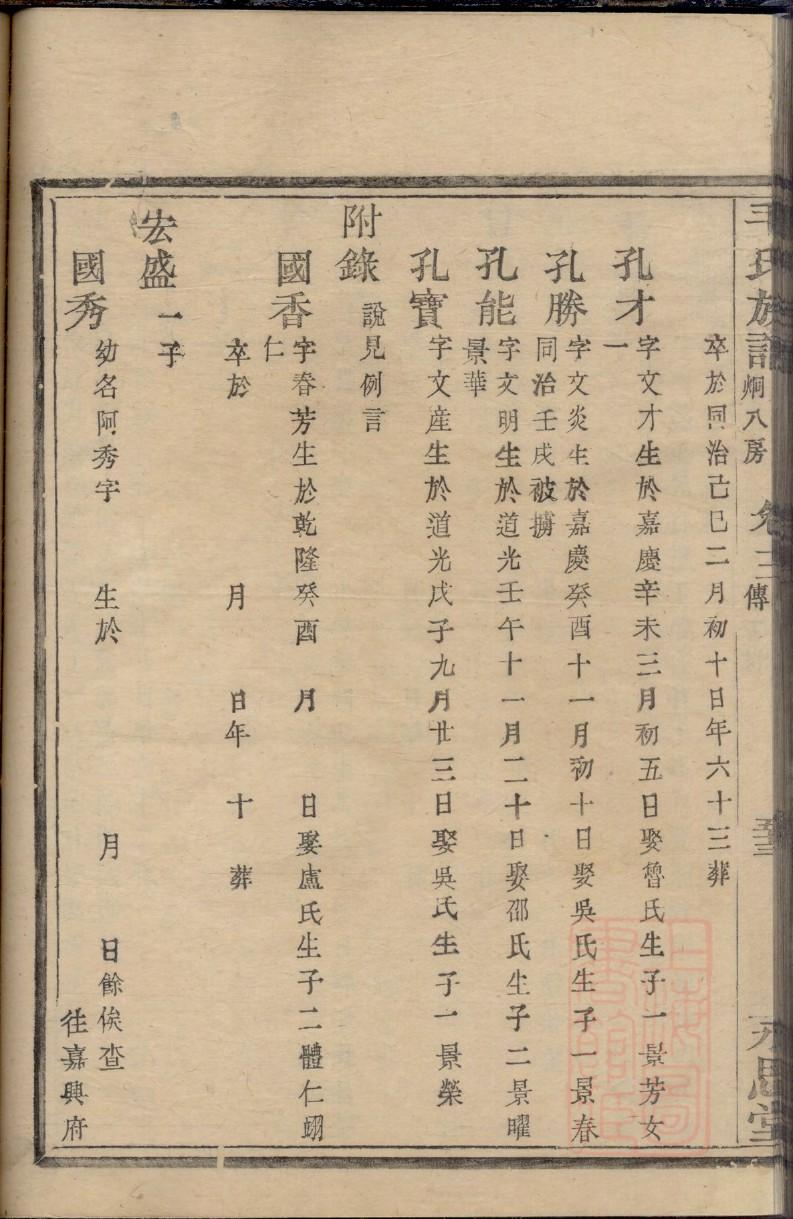 毛氏族譜 炯八房 卷三 傳 永思堂
卒於同治己巳二月初十日年六十三葬
孔才 字文才生於嘉慶辛未三月初五日娶魯氏生子一景芳女
一
孔勝 字文炎生於嘉慶癸酉十一月初十日娶吳氏生子一景春
同治壬戌被擄
孔能 字文明生於道光壬午十一月二十日娶邵氏生子二景曜
景華
孔寶 字文産生於道光戊子九月廿三日娶吳氏生子一景榮
附錄 說見例言
國香 字春芳生於乾隆癸酉 月 日娶盧氏生子二體仁翊
仁
卒於 月 日年 十 葬
宏盛 一子
國秀 幼名阿秀字 生於 月 日餘俟查
往嘉興府